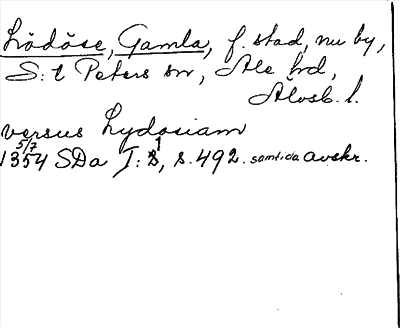 Lödöse, Gamla, f. stad, nu by,
S:t Peters sn, Ale hd,
Älvsb. l.
versus Lydosiam
1354 5/7 SDa I:1, s. 492. samtida avskr.